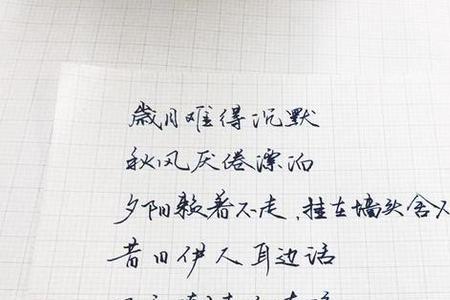 歲月难得沉默
秋风厌倦漂泊
夕阳赖着不走,挂在墙头舍不
昔日伊人耳边话